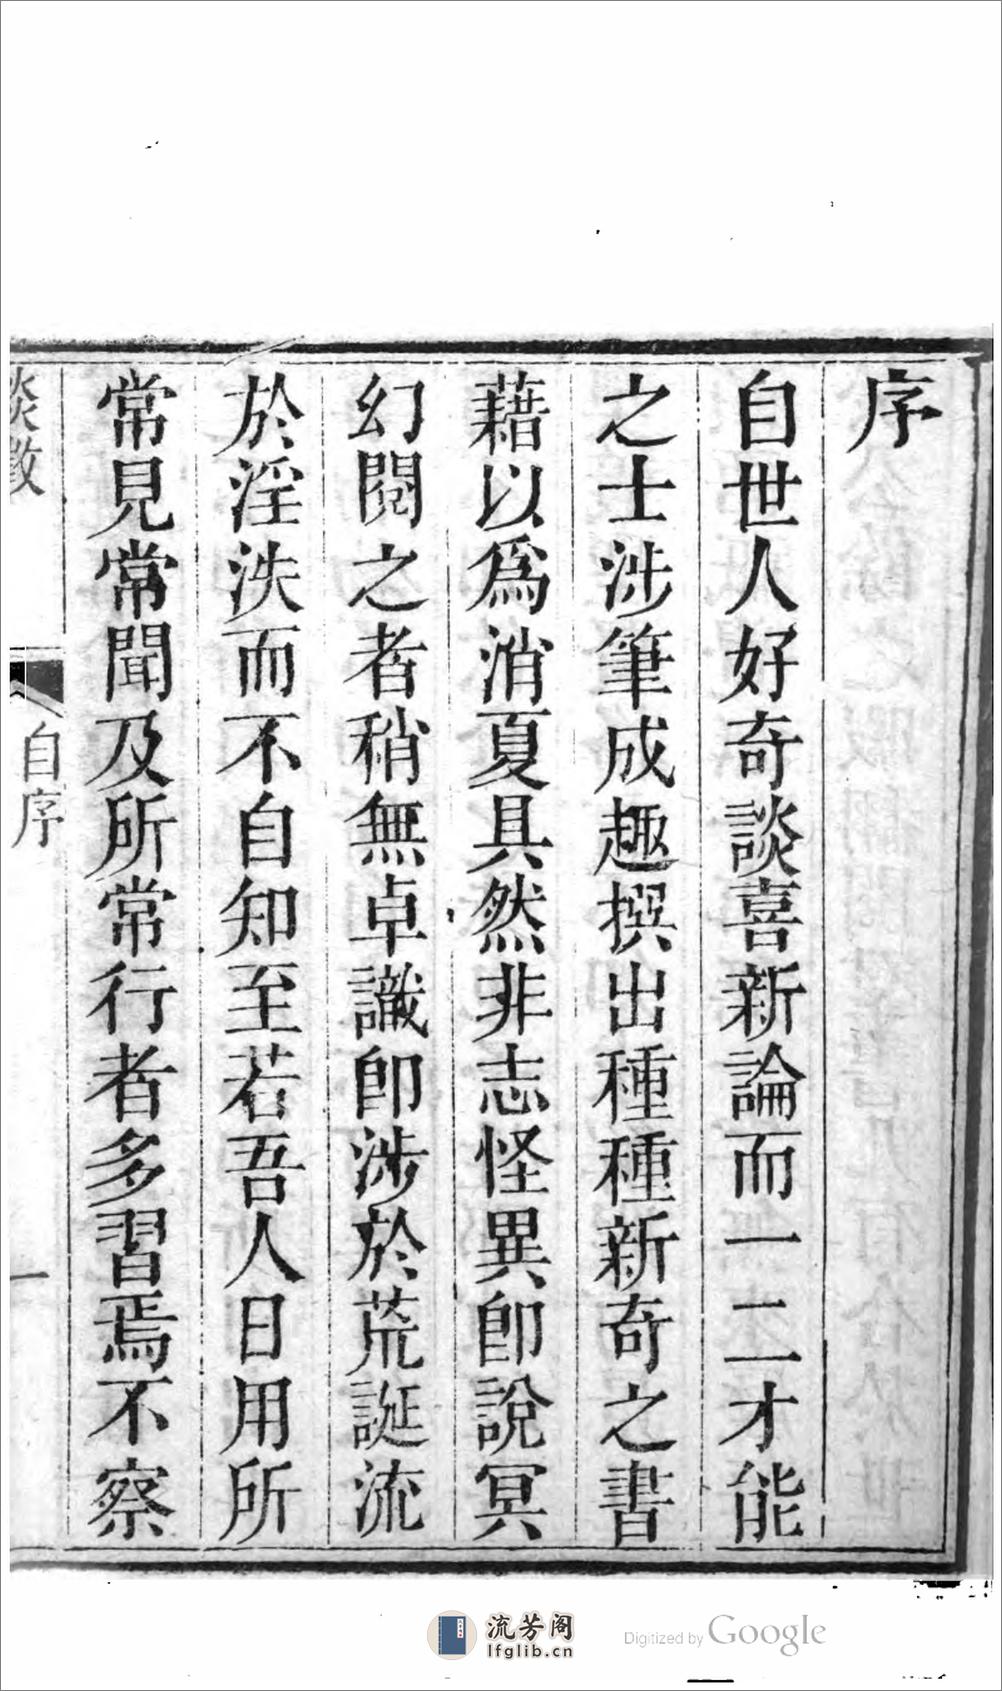 序
自世人好奇談喜新論而一二才能
之士涉筆成趣撰出種種新奇之書
藉以爲消夏具然非志怪異卽說冥
幻閱之者稍無卓識卽涉於荒誕流
於淫泆而不自知至若吾人日用所
常見常聞及所常行者多習焉不察
自序
一
流芳阁
lfglib.cn
Digitized by Google